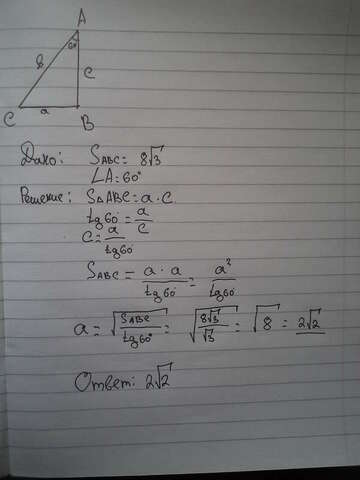 A
60°
8
c
C
a
B
Дано: SABC = 8√3
∠A = 60°
Решение: S△ABC = a · c
tg60 = a/c
c = a/tg60
SABC = a · a/tg60 = a²/tg60
a = √(SABC/tg60°) = √(8√3/√3) = √8 = 2√2
Ответ: 2√2